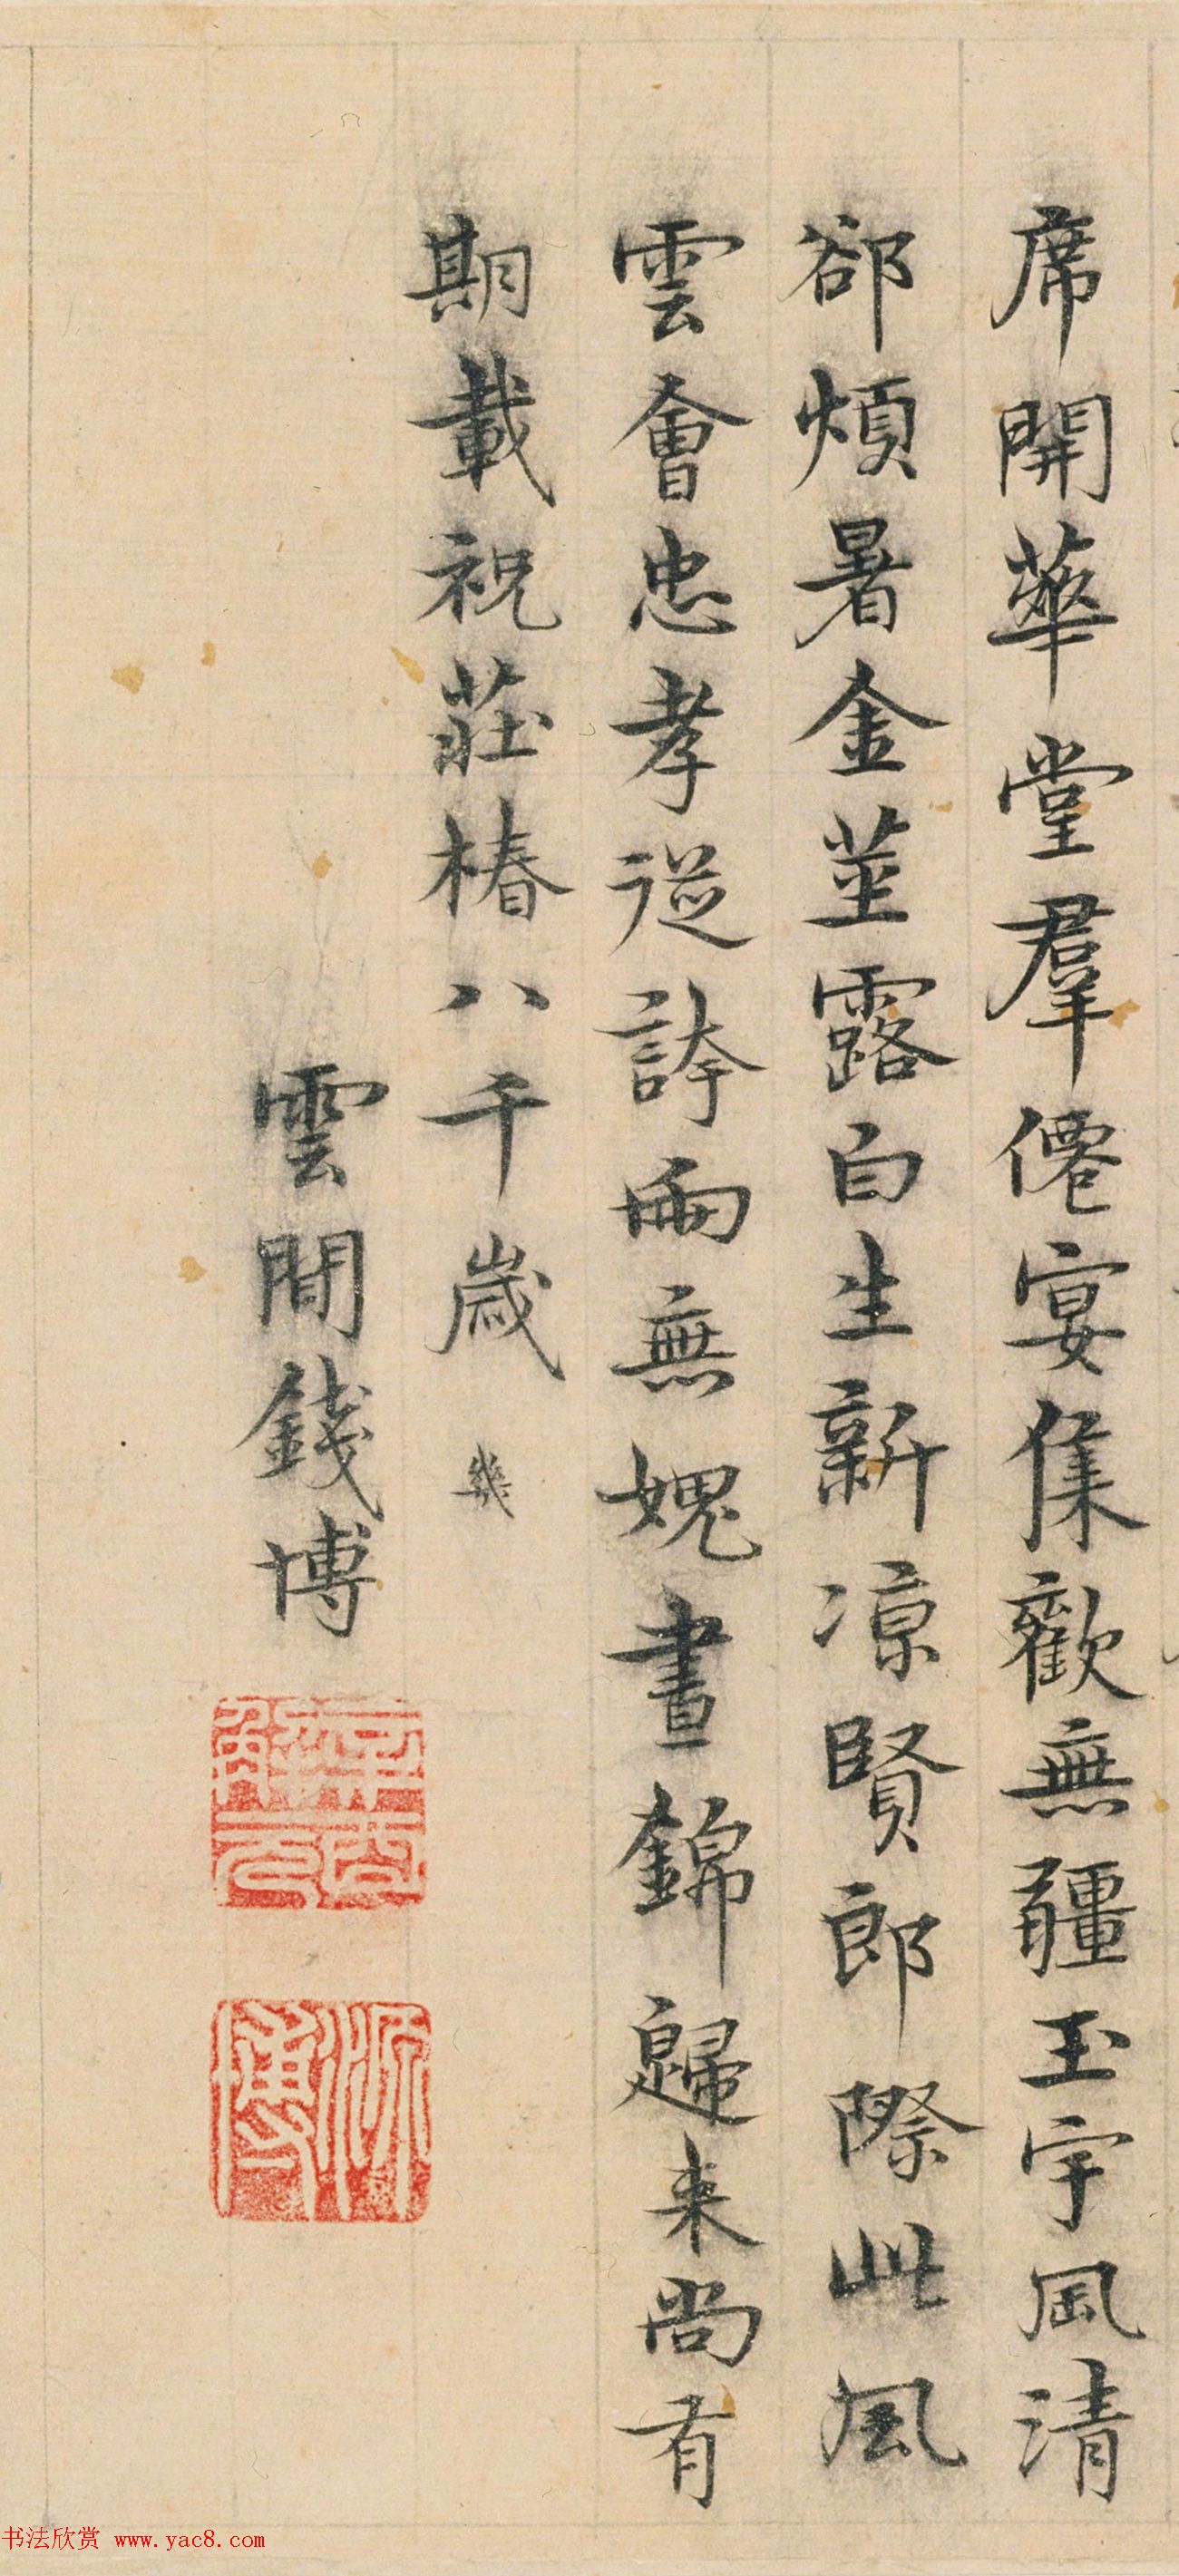 席開華堂羣僊宴集歡無疆玉宇風清
郤煩暑金莖露白生新涼賢郎際此風
雲會忠孝從誇兩無媿晝錦歸来尚有
期載祝莊椿八千歲 幾
雲間錢博
书法欣赏 www.yac8.com